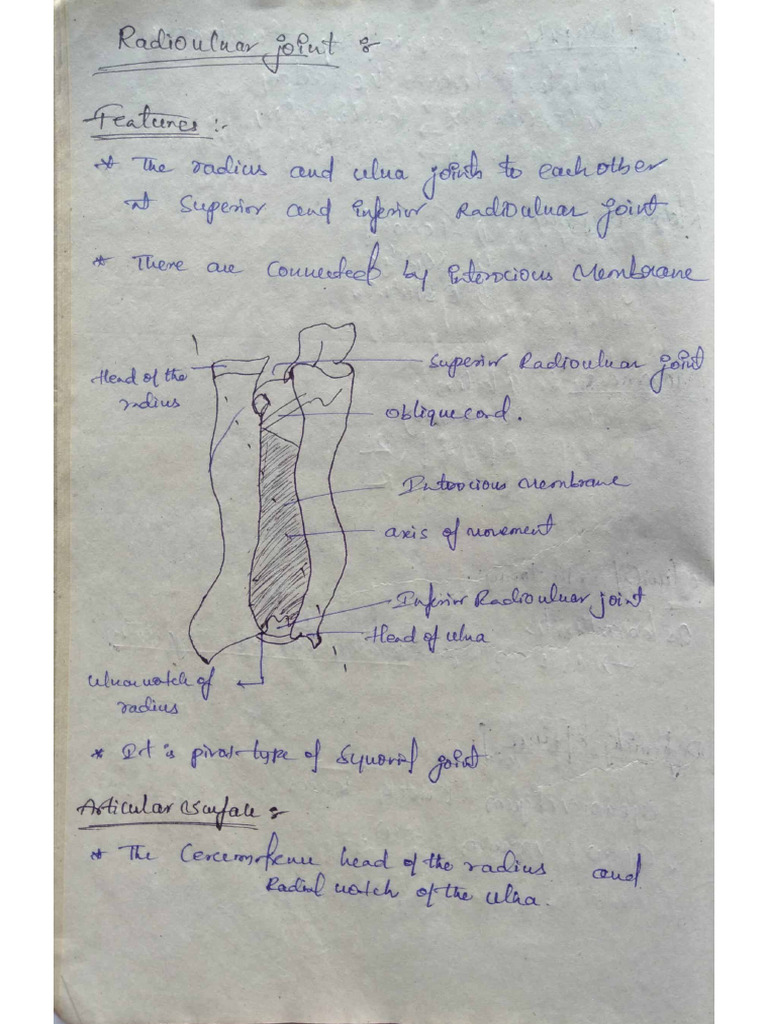 Radioulnar joint :
Features :-
* The radius and ulna joints to each other
at Superior and inferior Radioulnar joint
* There are connected by interocious membrane
Head of the
radius
Superior Radioulnar joint
Oblique cord.
Interocious membrane
axis of movement
Inferior Radioulnar joint
Head of ulna
ulnar notch of
radius
* It is pivot type of Synovial joint
Articular surface :
* The head of the radius and
Radial notch of the ulna.